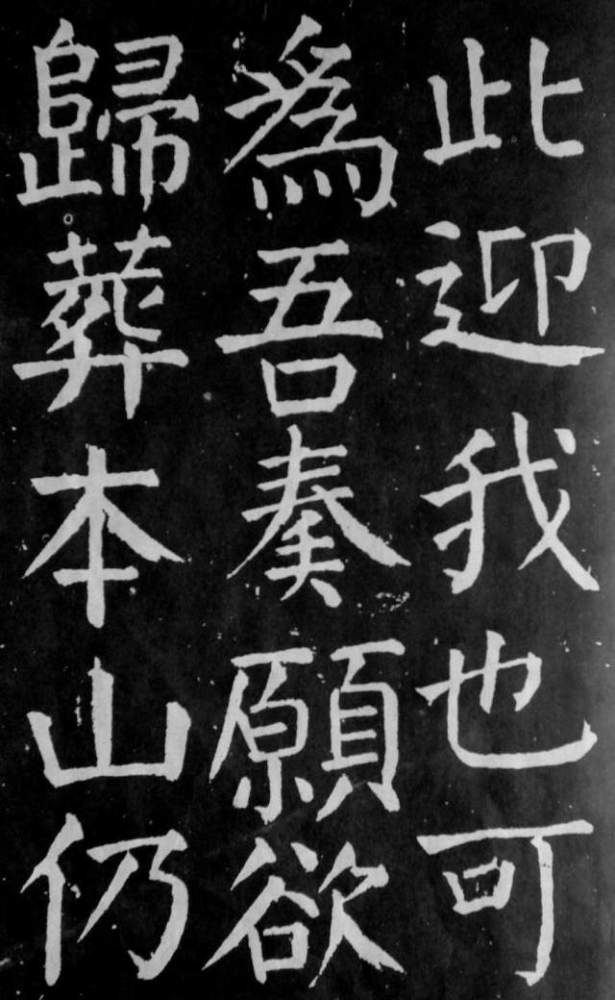 此迎我也可
為吾奏願欲
歸葬本山仍